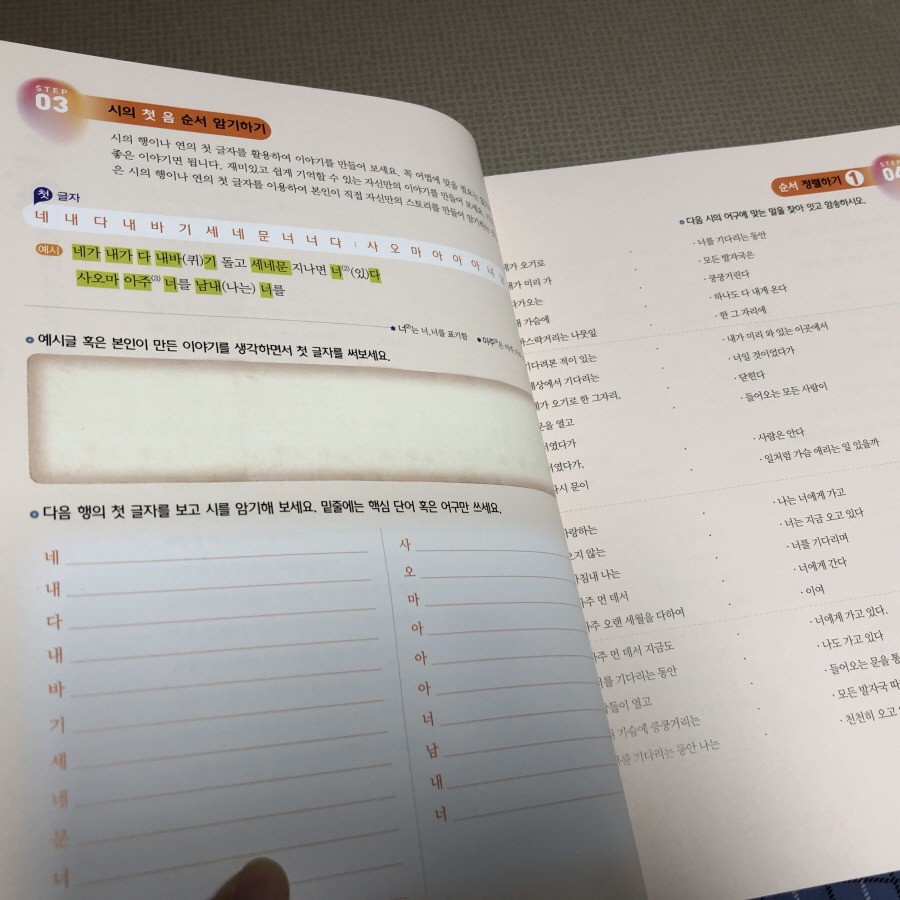 STEP
03
시의 첫 음 순서 암기하기
시의 행이나 연의 첫 글자를 활용하여 이야기를 만들어 보세요. 꼭 어법에 맞을 필요는
좋은 이야기면 됩니다. 재미있고 쉽게 기억할 수 있는 자신만의 이야기를 만들어 보세요.
은 시의 행이나 연의 첫 글자를 이용하여 본인이 직접 자신만의 스토리를 만들어
첫 글자
네 내 다 내 바 기 세 네 문 너 너 다 | 사 오 마 아 아 아 너
예시 네가 내가 다 내바(퀴)기 돌고 세네문 지나면 너(2)(있)다
사오마 아주(3) 너를 남내(나는) 너를
* 너(2)는 너, 너를 표기함 * 아주(3)은
예시글 혹은 본인이 만든 이야기를 생각하면서 첫 글자를 써보세요.
다음 행의 첫 글자를 보고 시를 암기해 보세요. 밑줄에는 핵심 단어 혹은 어구만 쓰세요.
네
내
다
내
바
기
세
네
문
너
사
오
마
아
아
아
너
남
내
너
STEP
04
순서 정렬하기 1
다음 시의 어구에 맞는 말을 찾아 잇고 암송하시오.
가 오기로
가 미리 가
가오는
가슴에
스락거리는 나뭇잎
다려본 적이 있는
세상에서 기다리는
가 오기로 한 그자리,
문을 열고
였다가
였다가,
다시 문이
사랑하는
오지 않는
침내 나는
주 먼 데서
주 오랜 세월을 다하여
주 먼 데서 지금도
를 기다리는 동안
들이 열고
가슴에 쿵쿵거리는
를 기다리는 동안 나는
· 너를 기다리는 동안
· 모든 발자국은
· 쿵쿵거린다
· 하나도 다 내게 온다
· 한 그 자리에
· 내가 미리 와 있는 이곳에서
· 너일 것이었다가
· 닫힌다
· 들어오는 모든 사람이
· 사람은 안다
· 일처럼 가슴 애리는 일 있을까
· 나는 너에게 가고
· 너는 지금 오고 있다
· 너를 기다리며
· 너에게 간다
· 이여
· 너에게 가고 있다.
· 나도 가고 있다
· 들어오는 문을 통
· 모든 발자국 따
· 천천히 오고